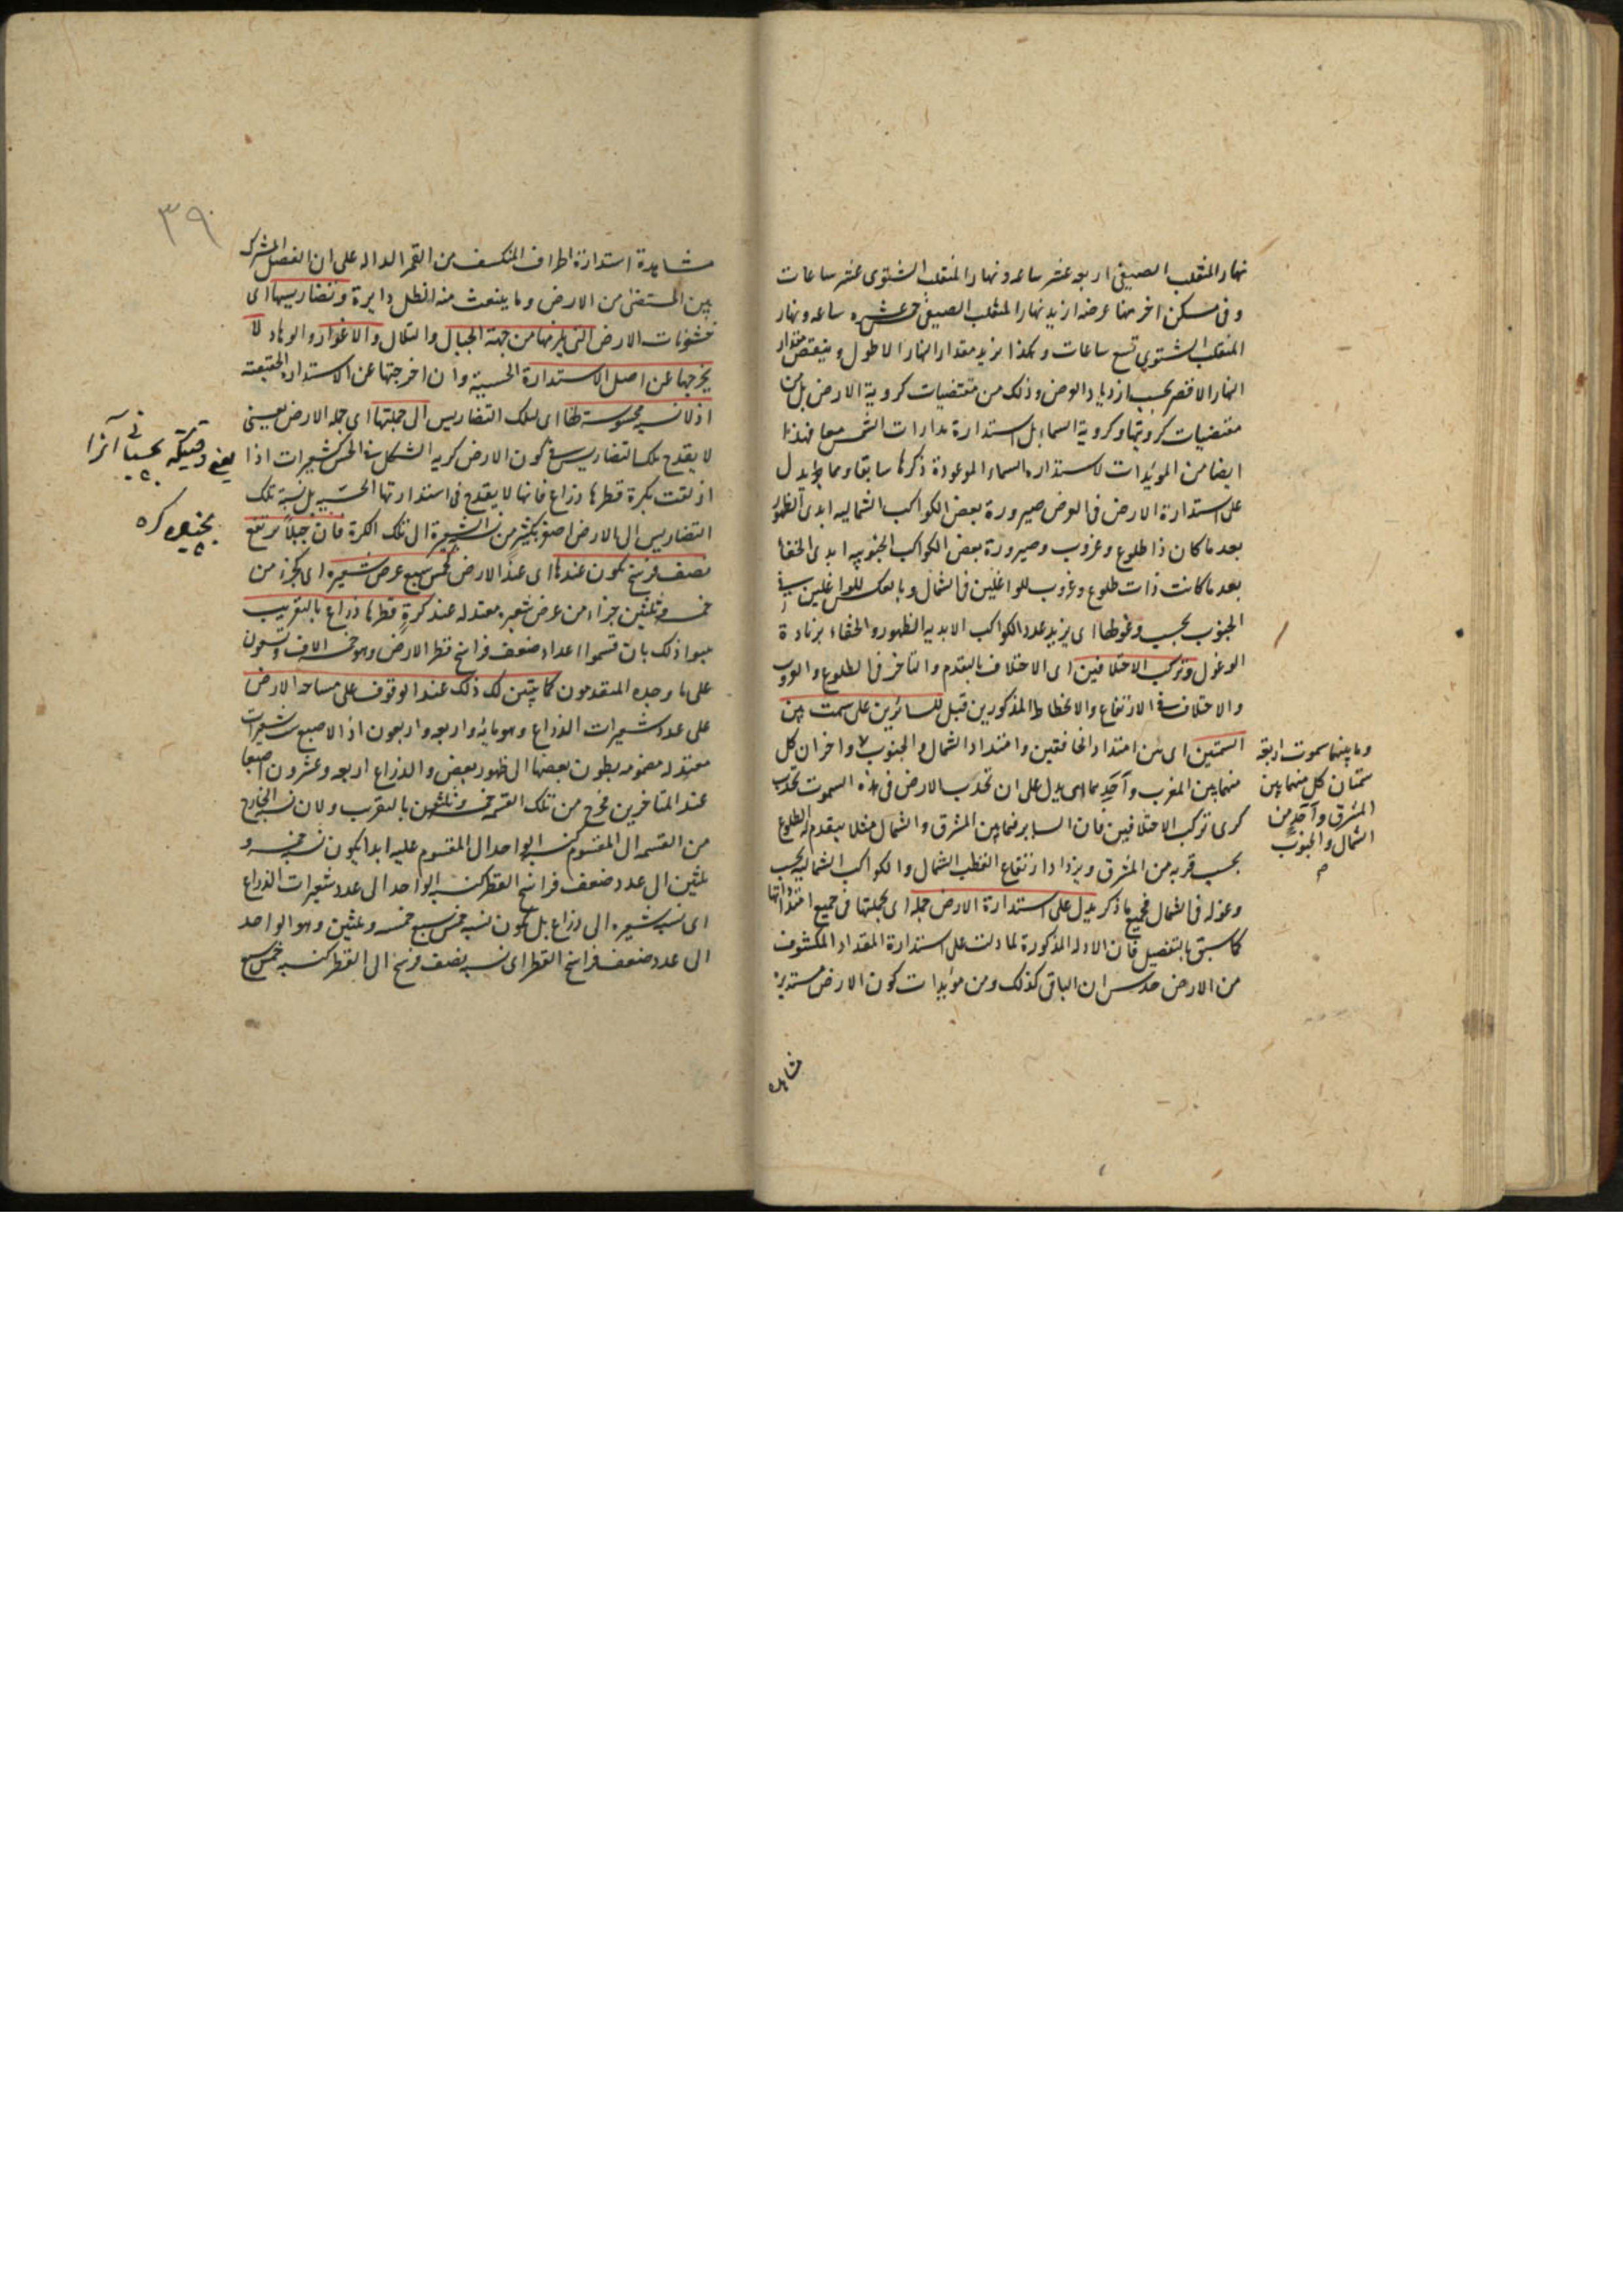 نهار المنقلب الصيفى اربعه عشر ساعه ونهار المنقلب الشتوى عشر ساعات
وفى مسكن اخر منها عرضه ازيد نهار المنقلب الصيفى خمس عشره ساعه ونهار
المنقلب الشتوى تسع ساعات وهكذا يزيد مقدار النهار الاطول وينتقص مقدار
النهار الاقصر بحسب ازدياد العرض وذلك من مقتضيات كروية الارض بل من
مقتضيات كرويتها وكروية السماء بل استدارة مدارات الشمس معا فهذا
ايضا من المويدات لاستداره السماء الموعودة ذكرها سابقا ومما يدل
على استدارة الارض فى العرض صيرورة بعض الكواكب الشماليه ابدى الظهور
بعد ما كان ذا طلوع وغروب وصيرورة بعض الكواكب الجنوبيه ابدى الخفا
بعد ما كانت ذات طلوع وغروب للواغلين فى الشمال وبالعكس للواغلين فى
الجنوب بحسب وغولها اى يزيد عدد الكواكب الابديه الظهور والخفاء بزيادة
الوغول وتركب الاختلافين اى الاختلاف بالتقدم والتاخر فى الطلوع والغروب
والاختلاف فى الارتفاع والانحطاط المذكورين قبل للسائرين على سمت بين
السمتين اى بين امتداد الخافقين وامتداد الشمال والجنوب واخران كل
منهما بين المغرب وآخر مما اى يدل على ان تحدب الارض فى هذه السموت تحدب
كرى تركب الاختلافين فان السائر فيما بين المشرق والشمال مثلا يتقدم له الطلوع
بحسب قربه من المشرق ويزداد ارتفاع القطب الشمال والكواكب الشماليه بحسب
وغوله فى الشمال فجميع ما ذكر يدل على استدارة الارض جملة اى بجملتها فى جميع امتداداتها
كما سبق بالتفصيل فان الادله المذكورة لما دلت على استدارة المقدار المكشوف
من الارض حدس ان الباقى كذلك ومن مويدات كون الارض مستديرة
مشاهده
وما بينهما سموت اربعة
سمتان كل منهما بين
المشرق وآخر من
الشمال والجنوب
٣٩
مشاهدة استدارة اطراف المنكسف من القمر الداله على ان الفصل المشترك
بين المستضئ من الارض وما ينبعث منه الظل دايرة وتضاريسها اى
خشونات الارض التى يلزمها من جهة الجبال والتلال والاغوار والوهاد لا
يخرجها عن اصل الاستدارة الحسية وان اخرجتها عن الاستداره الحقيقيه
اذ لا نسبه محسوسه لها اى لتلك التضاريس الى جملتها اى جمله الارض يعنى
لا يقدح تلك التضاريس فى كون الارض كريه الشكل فى الحس كشعيرات اذا
الزقت بكرة قطرها ذراع فانها لا يقدح فى استدارتها الحسيه بل نسبة تلك
التضاريس الى الارض اصغر بكثير من نسبة الشعيرة الى تلك الكرة فان جبلا يرتفع
نصف فرسخ يكون عندها اى عند الارض كخمس سبع عرض شعيره اى كجزء من
خمسه وثلثين جزءا من عرض شعيره معتدله عند كرة قطرها ذراع بالتقريب
ذلك بان قسموا اعداد ضعف فراسخ قطر الارض وهو خمسه الاف وتسعون
على ما وجده المتقدمون كما يتبين لك ذلك عند الوقوف على مساحه الارض
على عدد شعيرات الذراع وهو مايه واربعه واربعون اذ الاصبع ست شعيرات
معتدله مضمومه بطون بعضها الى ظهور بعض والذراع اربعه وعشرون اصبعا
عند المتاخرين فخرج من تلك القسمه خمسه وثلثون بالتقريب ولان نسبه الخارج
من القسمه الى المقسوم كنسبه الواحد الى المقسوم عليه ابدا يكون نسبه خمسه و
ثلثين الى عدد ضعف فراسخ القطر كنسبه الواحد الى عدد شعيرات الذراع
اى نسبه شعيره الى ذراع بل يكون نسبه خمس سبع خمسه وثلثين وهو الواحد
الى عدد ضعف فراسخ القطر اى نسبه نصف فرسخ الى القطر كنسبه خمس سبع